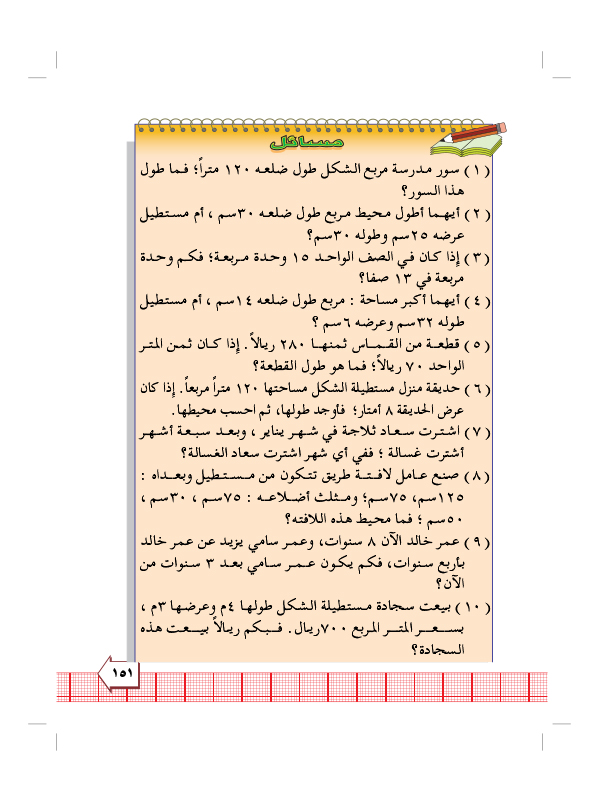 مسائل
( ١ ) سور مدرسة مربع الشكل طول ضلعه ١٢٠ متراً؛ فما طول
هذا السور؟
( ٢ ) أيهما أطول محيط مربع طول ضلعه ٣٠سم ، أم مستطيل
عرضه ٢٥سم وطوله ٣٠سم؟
( ٣ ) إذا كان في الصف الواحد ١٥ وحدة مربعة؛ فكم وحدة
مربعة في ١٣ صفا؟
( ٤ ) أيهما أكبر مساحة : مربع طول ضلعه ١٤سم ، أم مستطيل
طوله ٣٢سم وعرضه ٦سم ؟
( ٥ ) قطعة من القماس ثمنها ٢٨٠ ريالاً. إذا كان ثمن المتر
الواحد ٧٠ ريالاً؛ فما هو طول القطعة؟
( ٦ ) حديقة منزل مستطيلة الشكل مساحتها ١٢٠ متراً مربعاً. إذا كان
عرض الحديقة ٨ أمتار؛ فأوجد طولها، ثم احسب محيطها.
( ٧ ) اشترت سعاد ثلاجة في شهر يناير ، وبعد سبعة أشهر
أشترت غسالة ؛ ففي أي شهر اشترت سعاد الغسالة؟
( ٨ ) صنع عامل لافتة طريق تتكون من مستطيل وبعداه :
١٢٥سم، ٧٥سم؛ ومثلث أضلاعه : ٧٥سم ، ٣٠سم ،
٥٠سم ؛ فما محيط هذه اللافته؟
( ٩ ) عمر خالد الآن ٨ سنوات، وعمر سامي يزيد عن عمر خالد
بأربع سنوات، فكم يكون عمر سامي بعد ٣ سنوات من
الآن؟
( ١٠ ) بيعت سجادة مستطيلة الشكل طولها ٤م وعرضها ٣م ،
بسعر المتر المربع ٧٠٠ريال. فبكم ريالاً بيعت هذه
السجادة؟
١٥١